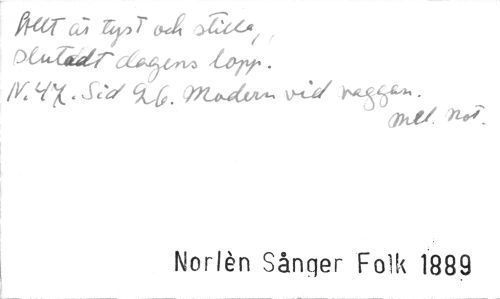 Allt är tyst och stilla,
slutadt dagens lopp.
N. 47. Sid 26. Modern vid vaggan.
mel. not.
Norlèn Sånger Folk 1889